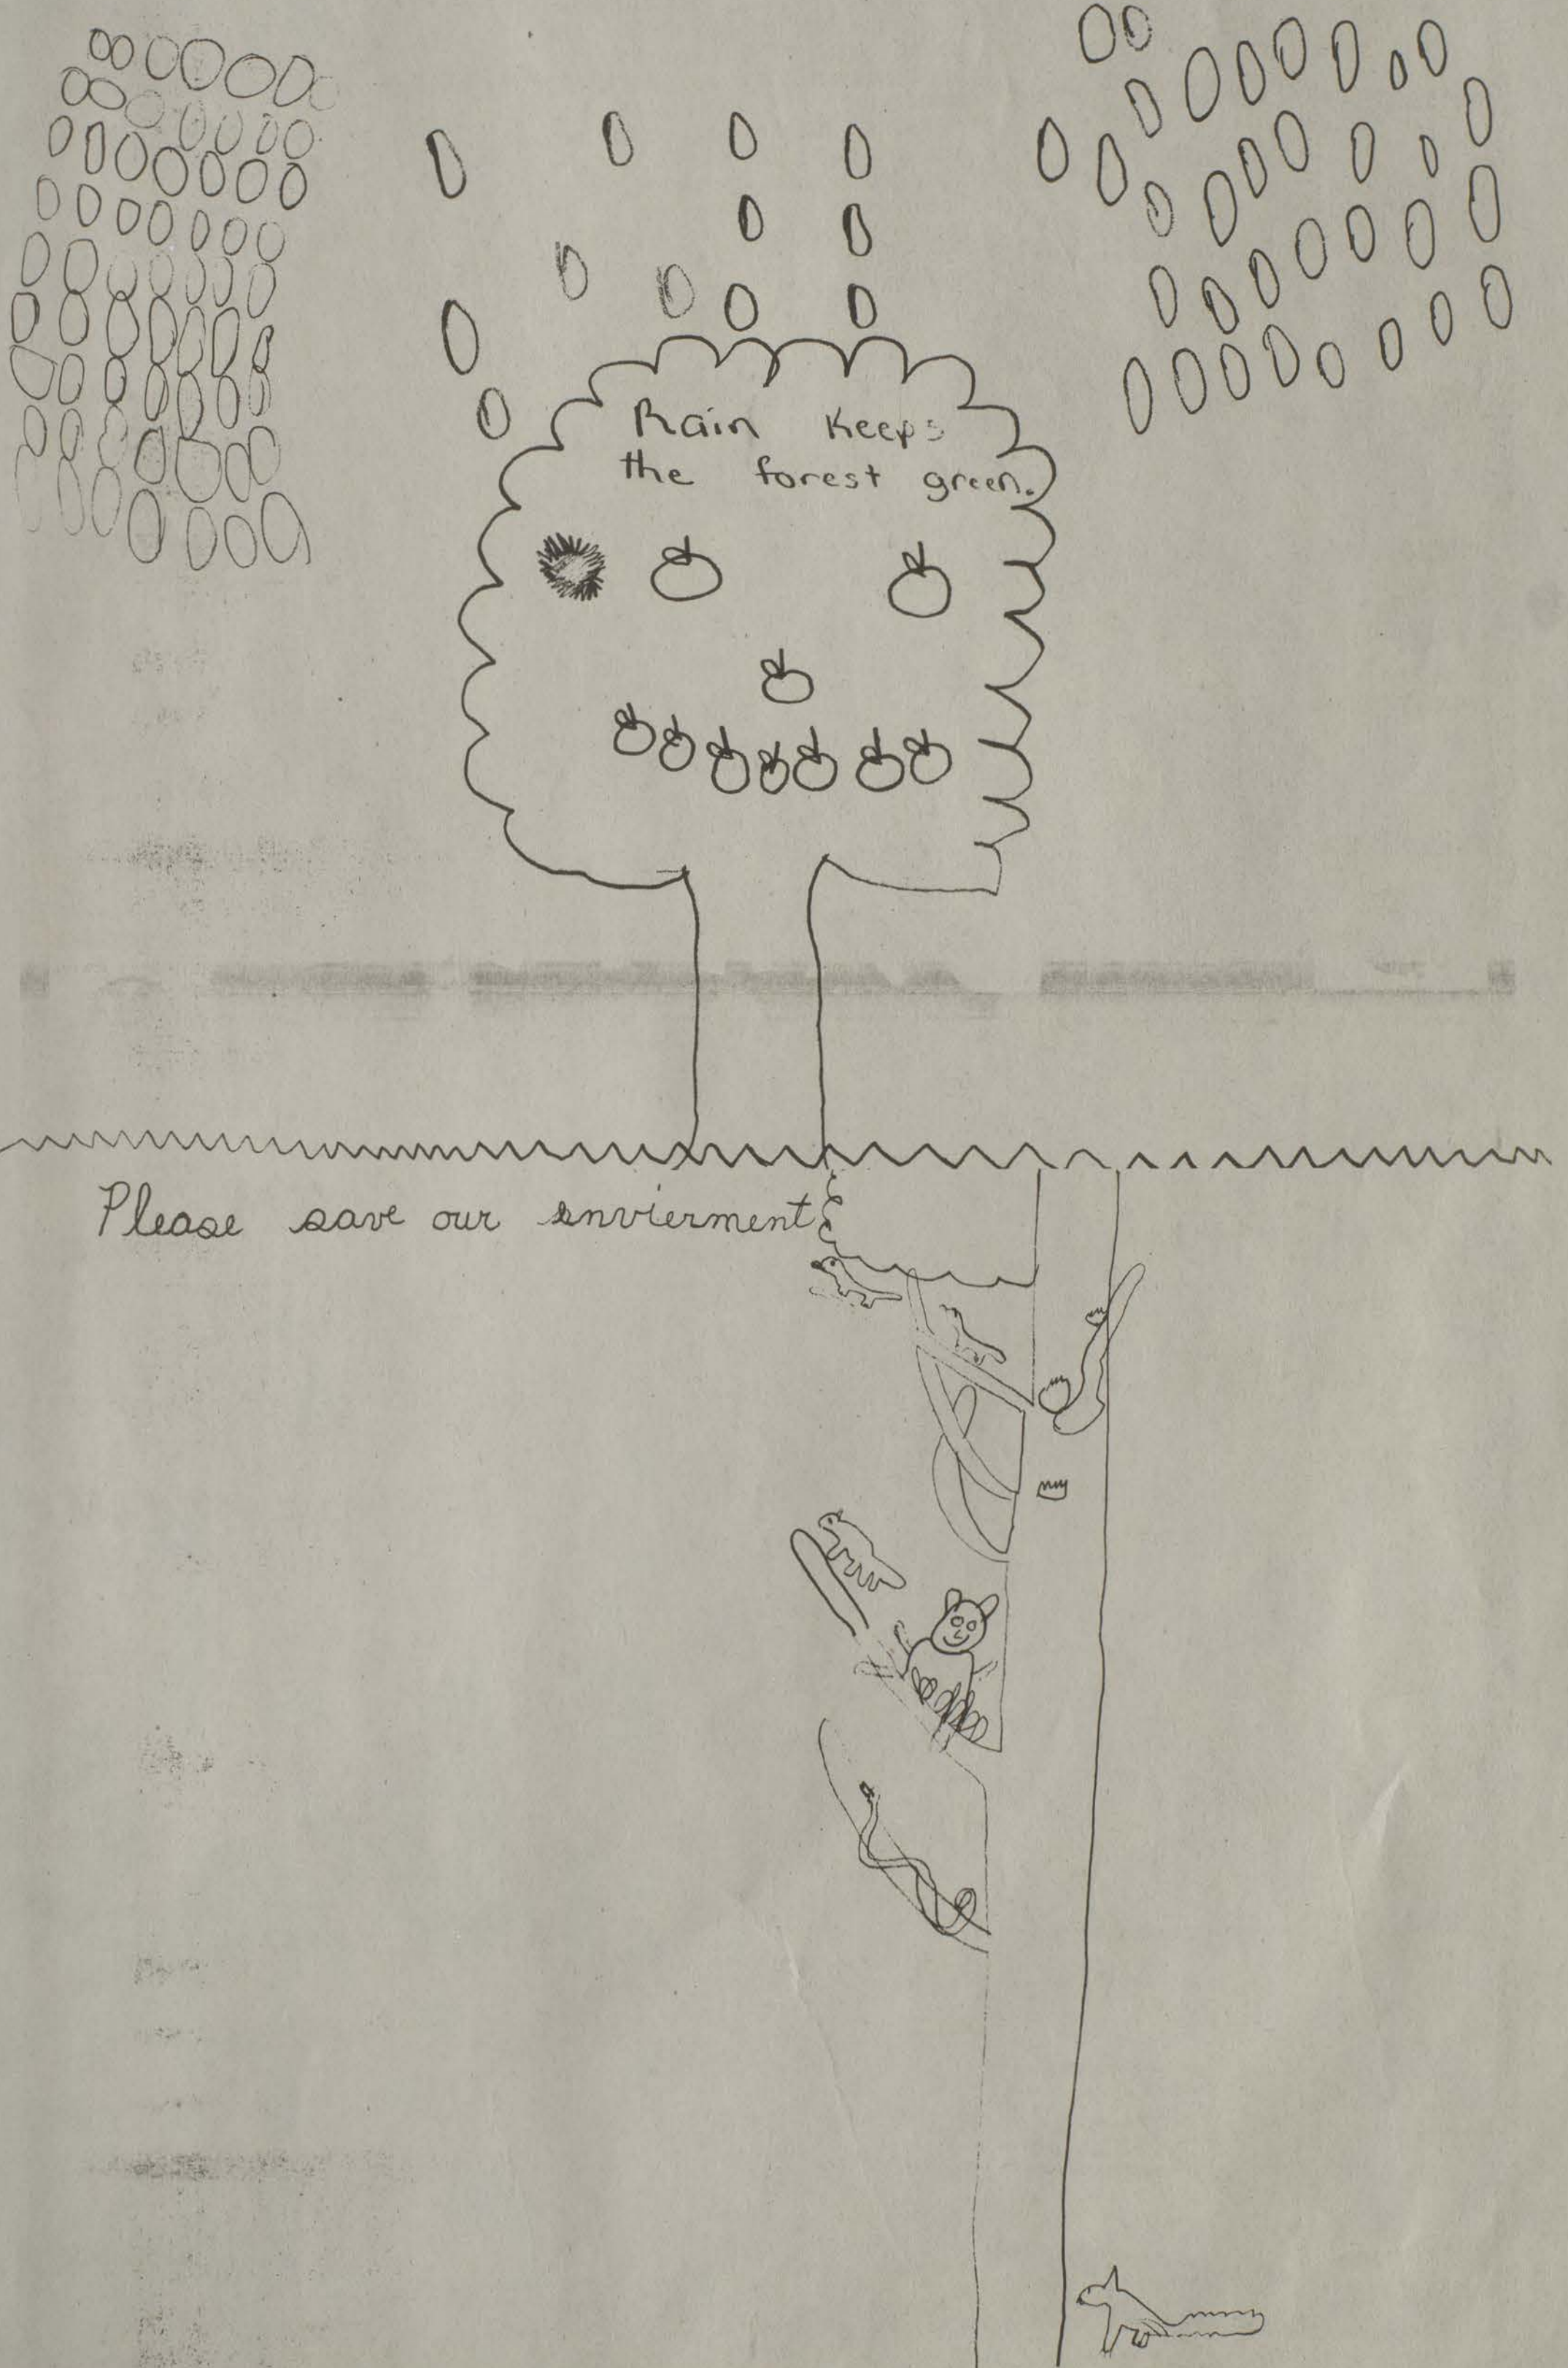 Rain keeps
the forest green.
Please save our envierment